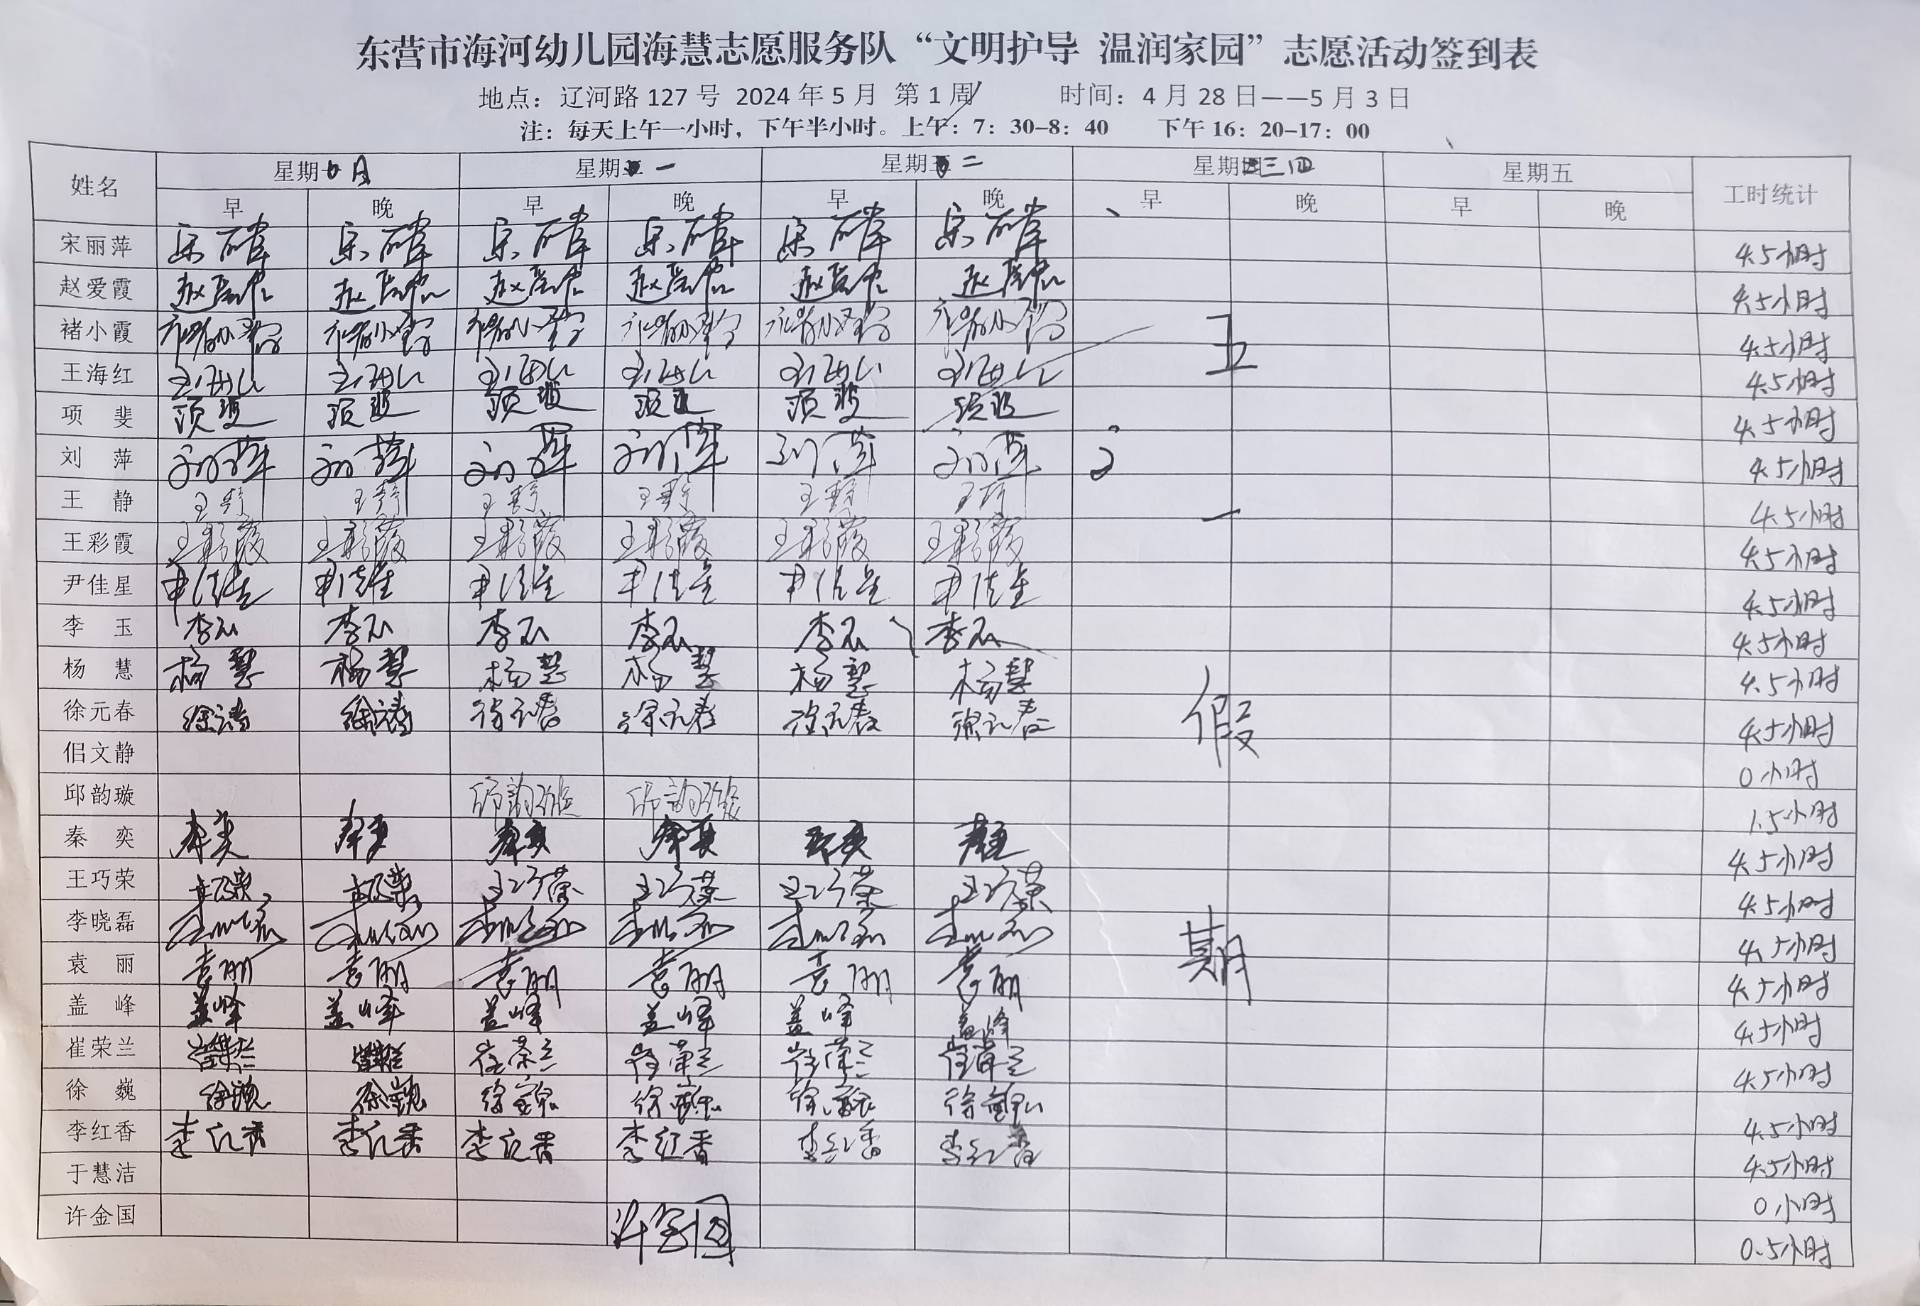 东营市海河幼儿园海慧志愿服务队“文明护导 温润家园”志愿活动签到表
地点：辽河路 127 号 2024 年 5 月 第 1 周 时间：4 月 28 日——5 月 3 日
注：每天上午一小时，下午半小时。上午：7：30-8：40 下午 16：20-17：00
姓名 星期日 星期一 星期二 星期三四 星期五 工时统计
早 晚 早 晚 早 晚 早 晚 早 晚
宋丽萍 宋丽萍 宋丽萍 宋丽萍 宋丽萍 宋丽萍 宋丽萍 4.5小时
赵爱霞 赵爱霞 赵爱霞 赵爱霞 赵爱霞 赵爱霞 赵爱霞 4.5小时
褚小霞 褚小霞 褚小霞 褚小霞 褚小霞 褚小霞 褚小霞 五 4.5小时
王海红 王海红 王海红 王海红 王海红 王海红 王海红 4.5小时
项 斐 项斐 项斐 项斐 项斐 项斐 项斐 4.5小时
刘 萍 刘萍 刘萍 刘萍 刘萍 刘萍 刘萍 4.5小时
王 静 王静 王静 王静 王静 王静 王静 一 4.5小时
王彩霞 王彩霞 王彩霞 王彩霞 王彩霞 王彩霞 王彩霞 4.5小时
尹佳星 尹佳星 尹佳星 尹佳星 尹佳星 尹佳星 尹佳星 4.5小时
李 玉 李玉 李玉 李玉 李玉 李玉 李玉 4.5小时
杨 慧 杨慧 杨慧 杨慧 杨慧 杨慧 杨慧 4.5小时
徐元春 徐元春 徐元春 徐元春 徐元春 徐元春 徐元春 假 4.5小时
佀文静 0小时
邱韵璇 邱韵璇 邱韵璇 1.5小时
秦 奕 秦奕 秦奕 秦奕 秦奕 秦奕 秦奕 4.5小时
王巧荣 王巧荣 王巧荣 王巧荣 王巧荣 王巧荣 王巧荣 4.5小时
李晓磊 李晓磊 李晓磊 李晓磊 李晓磊 李晓磊 李晓磊 4.5小时
袁 丽 袁丽 袁丽 袁丽 袁丽 袁丽 袁丽 期 4.5小时
盖 峰 盖峰 盖峰 盖峰 盖峰 盖峰 盖峰 4.5小时
崔荣兰 崔荣兰 崔荣兰 崔荣兰 崔荣兰 崔荣兰 崔荣兰 4.5小时
徐 巍 徐巍 徐巍 徐巍 徐巍 徐巍 徐巍 4.5小时
李红香 李红香 李红香 李红香 李红香 李红香 李红香 4.5小时
于慧洁 0小时
许金国 许金国 0.5小时